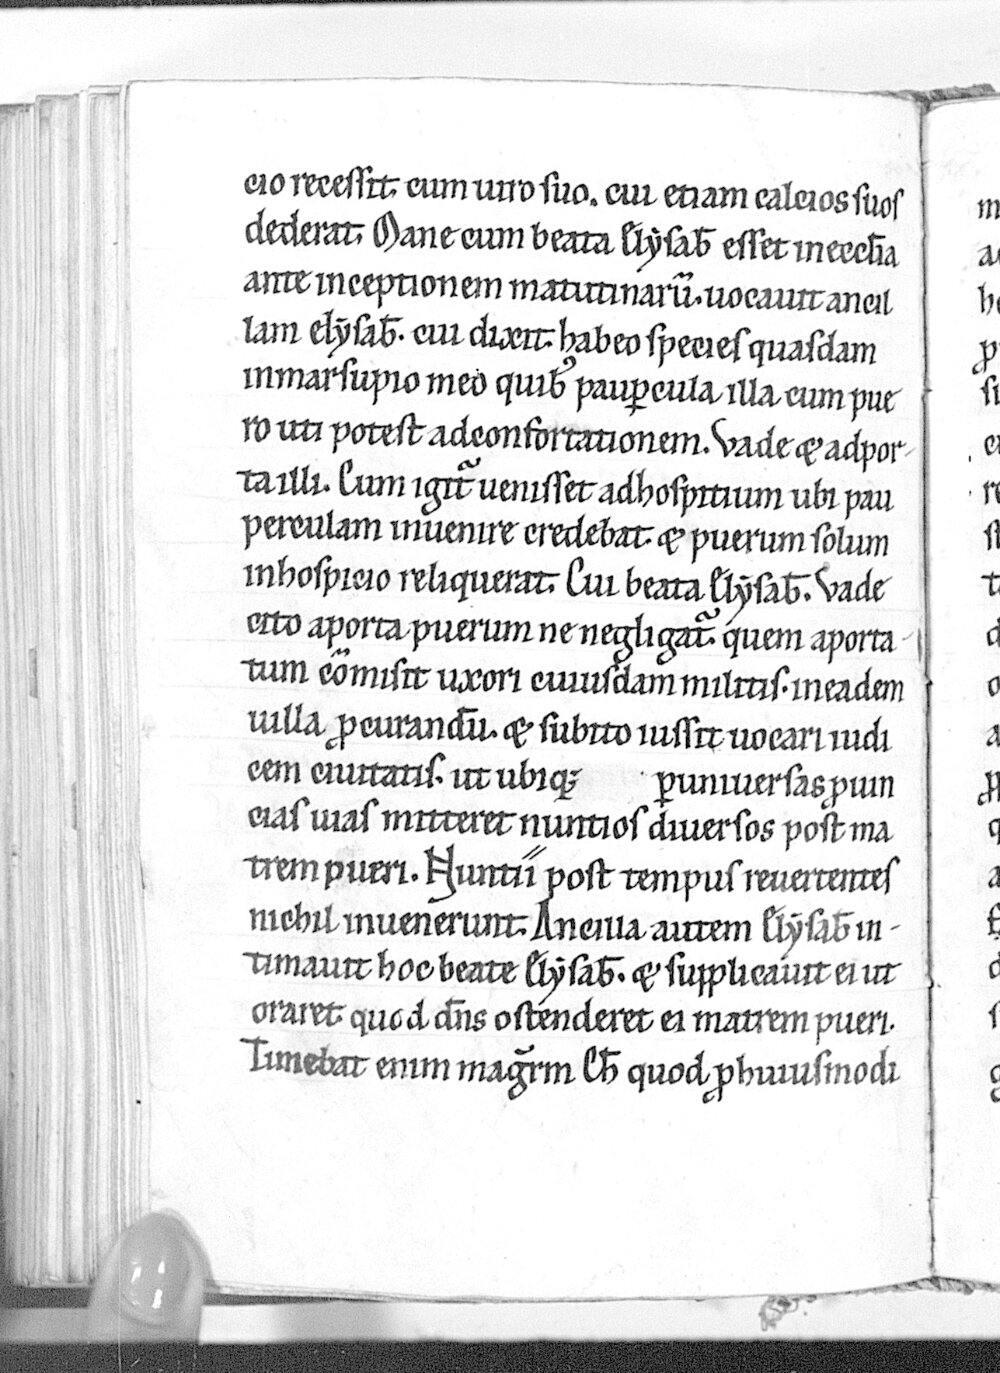 cio recessit. cum uiro suo. cui etiam calcios suos
dederat. Mane cum beata Elẏsab̄ esset in eccl̄ia
ante inceptionem matutinarū. uocauit ancil
lam elẏsab̄. cui dixit. habeo species quasdam
in marsupio meo quibꝰ paup̱cula illa cum pue
ro uti potest ad confortationem. Vade & adpor-
ta illi. Cum igit᷑ uenisset ad hospitium ubi pau
perculam inuenire credebat. & puerum solum
in hospicio reliquerat. Cui beata Elẏsab̄. Vade
cito aporta puerum ne negligat᷑. quem aporta-
tum cōmisit uxori cuiusdam militis. in eadem
uilla ꝓcurandū. & subito iussit uocari iudi
cem ciuitatis. ut ubiqꝫ ꝑ uniuersas ꝓuin
cias uias mitteret nuntios diuersos post ma
trem pueri. Nuntii post tempus reuertentes
nichil inuenerunt. Ancilla autem Elẏsab̄ in-
timauit hoc beate Elẏsab̄. & supplicauit ei ut
oraret. quod dn̄s ostenderet ei matrem pueri.
Timebat enim magr̄m Ch̄ quod ꝓ huiusmodi